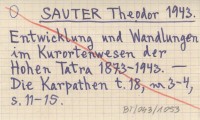 SAUTER Theodor 1943.
Entwicklung und Wandlungen
im Kurortenwesen der
Hohen Tatra 1873-1943. —
Die Karpathen t. 18, nr 3-4,
s. 11-15.